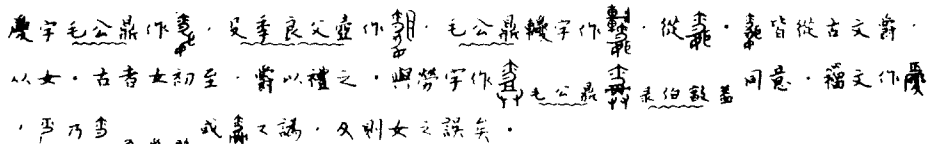 字毛公鼎作，殳季良父壺作，毛公鼎字作，從。皆從古文爵，
从女。古者女初至，爵以禮之。與勞字作毛公鼎彔伯𣪘蓋同意。籀文作
，乃或之譌，夊則女之誤矣。